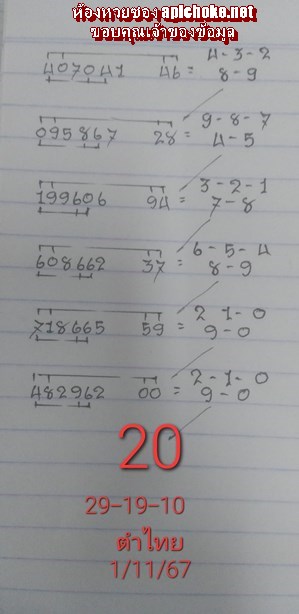 ห้องหวยซอง apichoke.net
ขอบคุณเจ้าของข้อมูล
4-3-2
407041 46 = 8-9
9-8-7
095867 28 = 4-5
3-2-1
199606 94 = 7-8
6-5-4
608662 37 = 8-9
2 1-0
718665 59 = 9-0
2-1-0
482962 00 = 9-0
20
29-19-10
ตำไทย
1/11/67